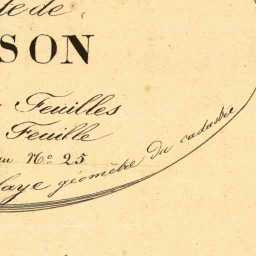 te de
SON
Feuilles
Feuille
au N° 25
laye géomètre du cadastre